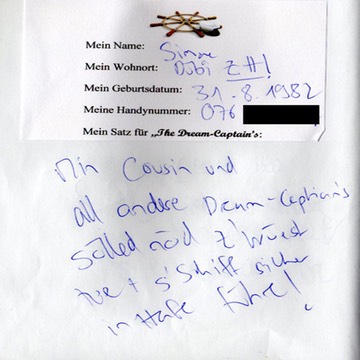 Mein Name: Simone
Mein Wohnort: Dübi ZH!
Mein Geburtsdatum: 31.8.1982
Meine Handynummer: 076
Mein Satz für „The Dream-Captain's:
Min Cousin und
all andere Dream-Captain's
sölled nöd z'Wüest
tue + s'Schiff sicher
in Hafe führe!